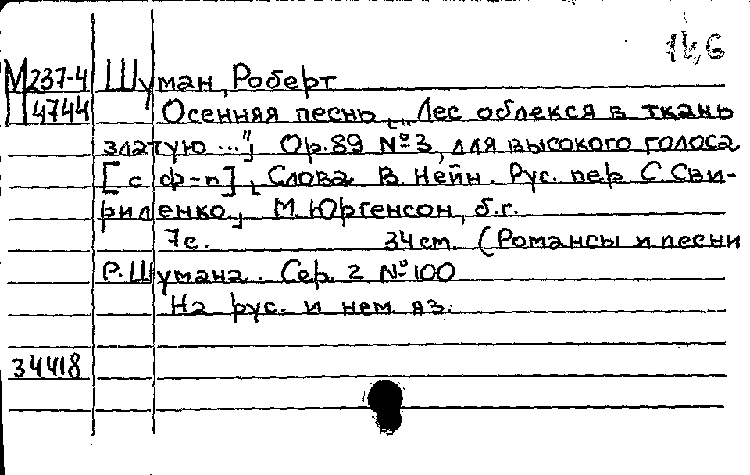 14,6
М237-4 Шуман, Роберт
П4744 Осенняя песнь, "Лес облекся в ткань
златую ..."] Op.89 №3, для высокого голоса
[с ф-п] [Слова В. Нейн. Рус. пер С Сви-
риленко] М. Юргенсон, б.г.
7с. 34см. (Романсы и песни
Р. Шумана. Сер. 2 №100
На рус. и нем яз.
34418